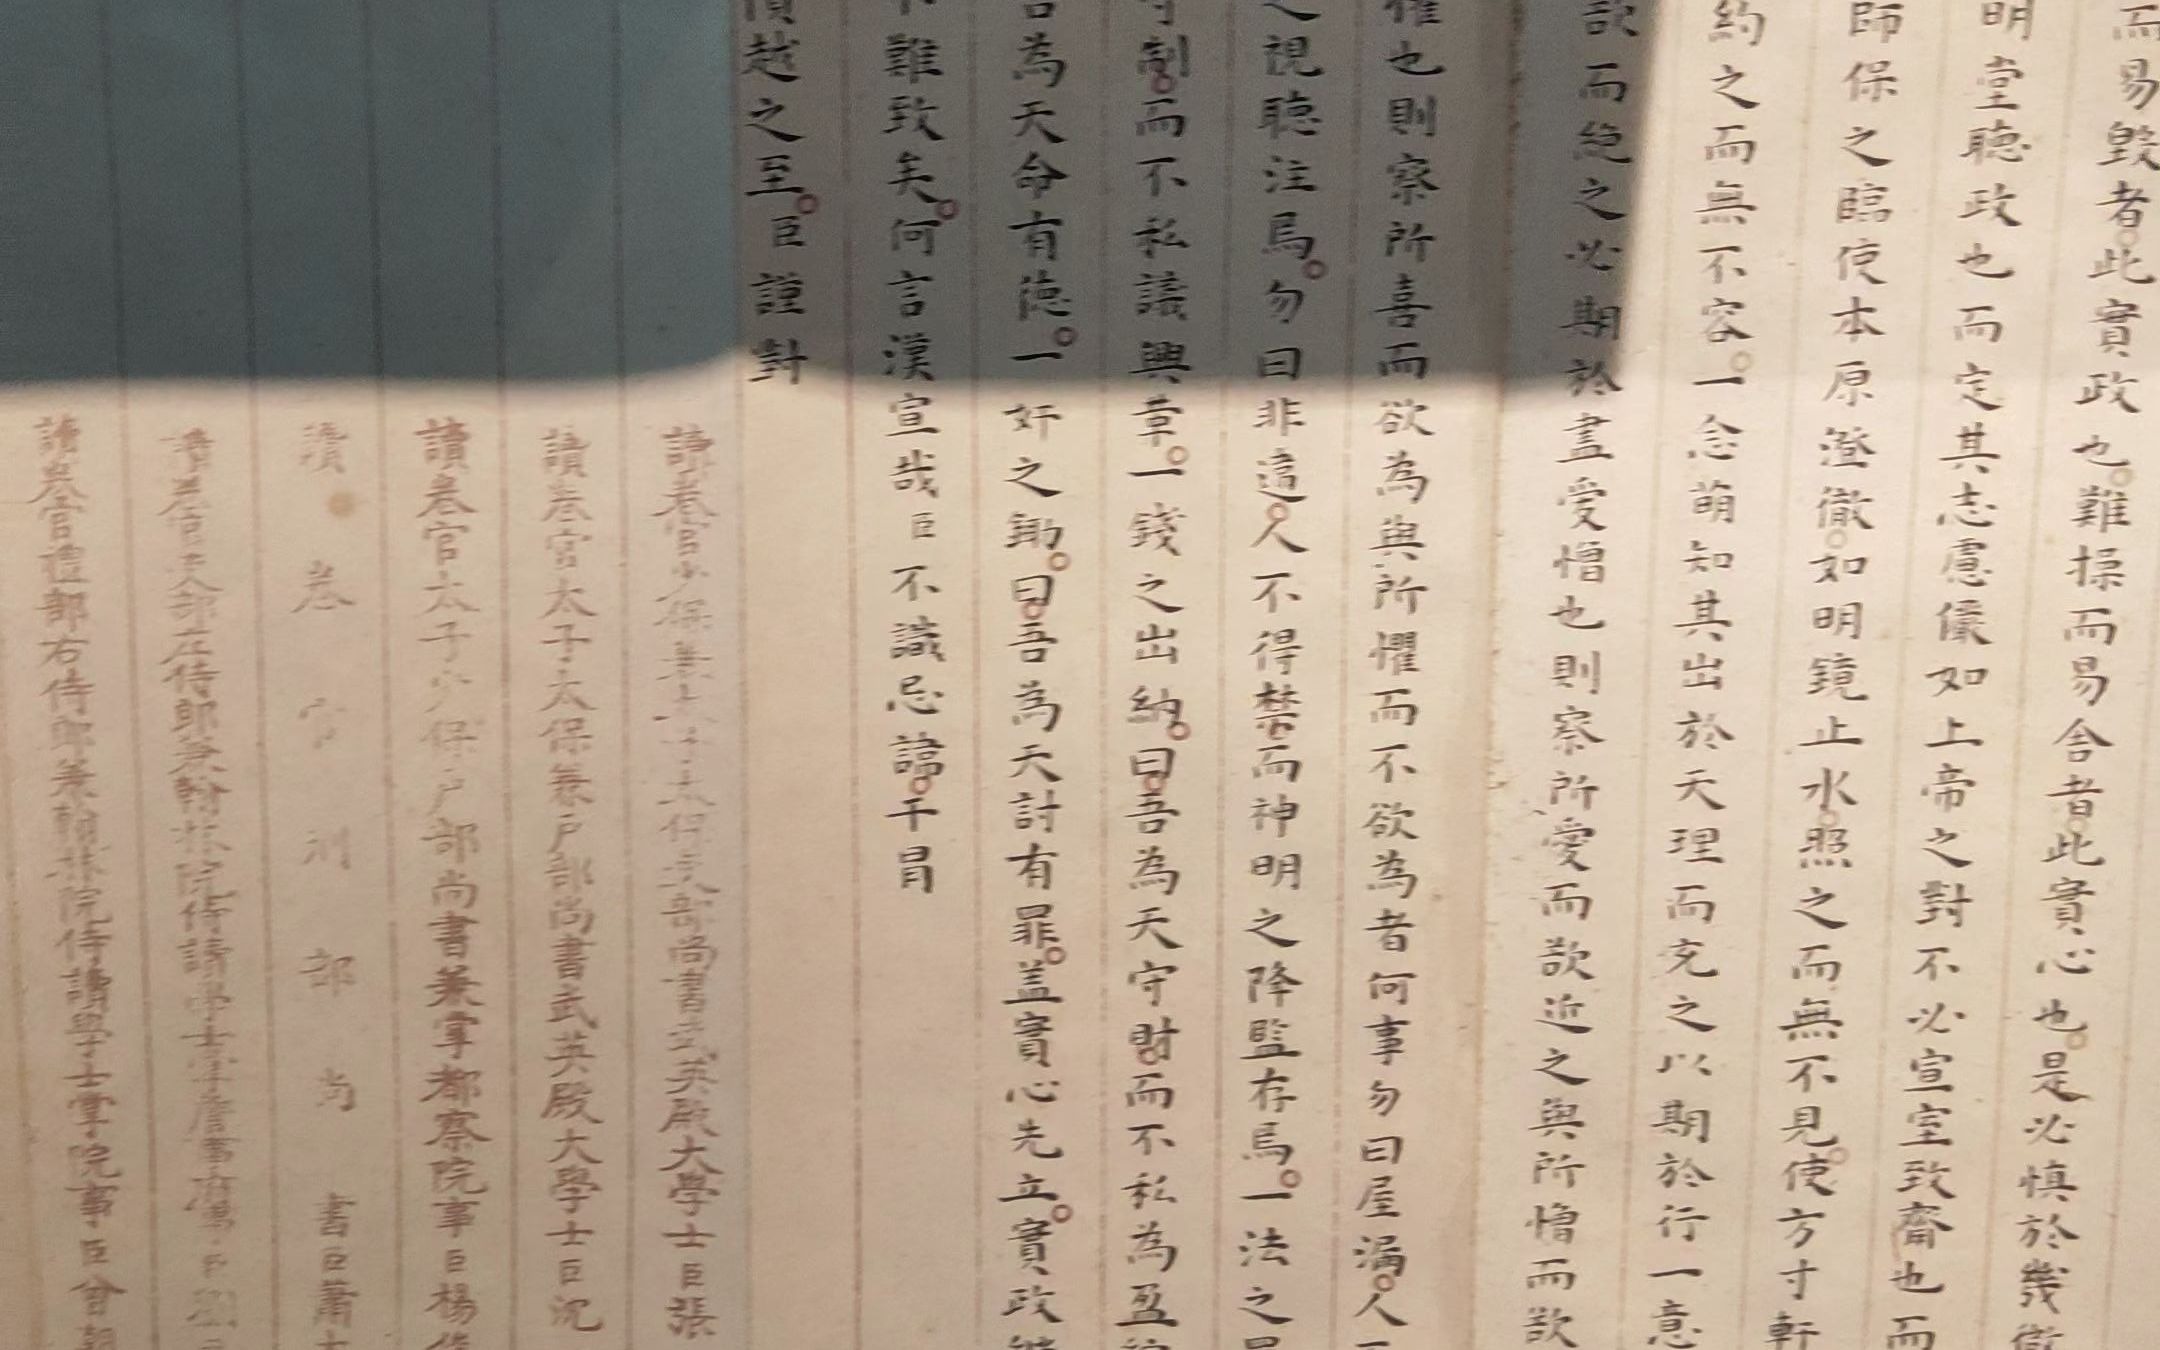 而易毀者此實政也難操而易舍者此實心也是必慎於幾微
明堂聽政也而定其志慮儼如上帝之對不必宣室致齋也而
師保之臨使本原澄徹如明鏡止水照之而無不見使方寸軒
約之而無不容一念萌知其出於天理而充之以期於行一意
欲而絶之必期於盡愛憎也則察所愛而欲近之與所憎而欲
懼也則察所喜而欲為與所懼而不欲為者何事勿曰屋漏人
之視聽注焉勿曰非遠人不得禁而神明之降監存焉一法之
守制而不私議興革一錢之出納曰吾為天守財而不私為盈
吾為天命有德一奸之鋤曰吾為天討有罪盖實心先立實政
不難致矣何言漢宣哉臣不識忌諱干冐
隕越之至臣謹對
讀卷官少保兼太子太保吏部尚書武英殿大學士臣張
讀卷官太子太保兼戶部尚書武英殿大學士臣沉
讀卷官太子少保戶部尚書兼掌都察院事臣楊俊
讀卷官刑部尚書臣蕭大
讀卷官吏部左侍郎兼翰林院侍讀學士掌詹事府事臣
讀卷官禮部右侍郎兼翰林院侍讀學士掌院事臣曾朝